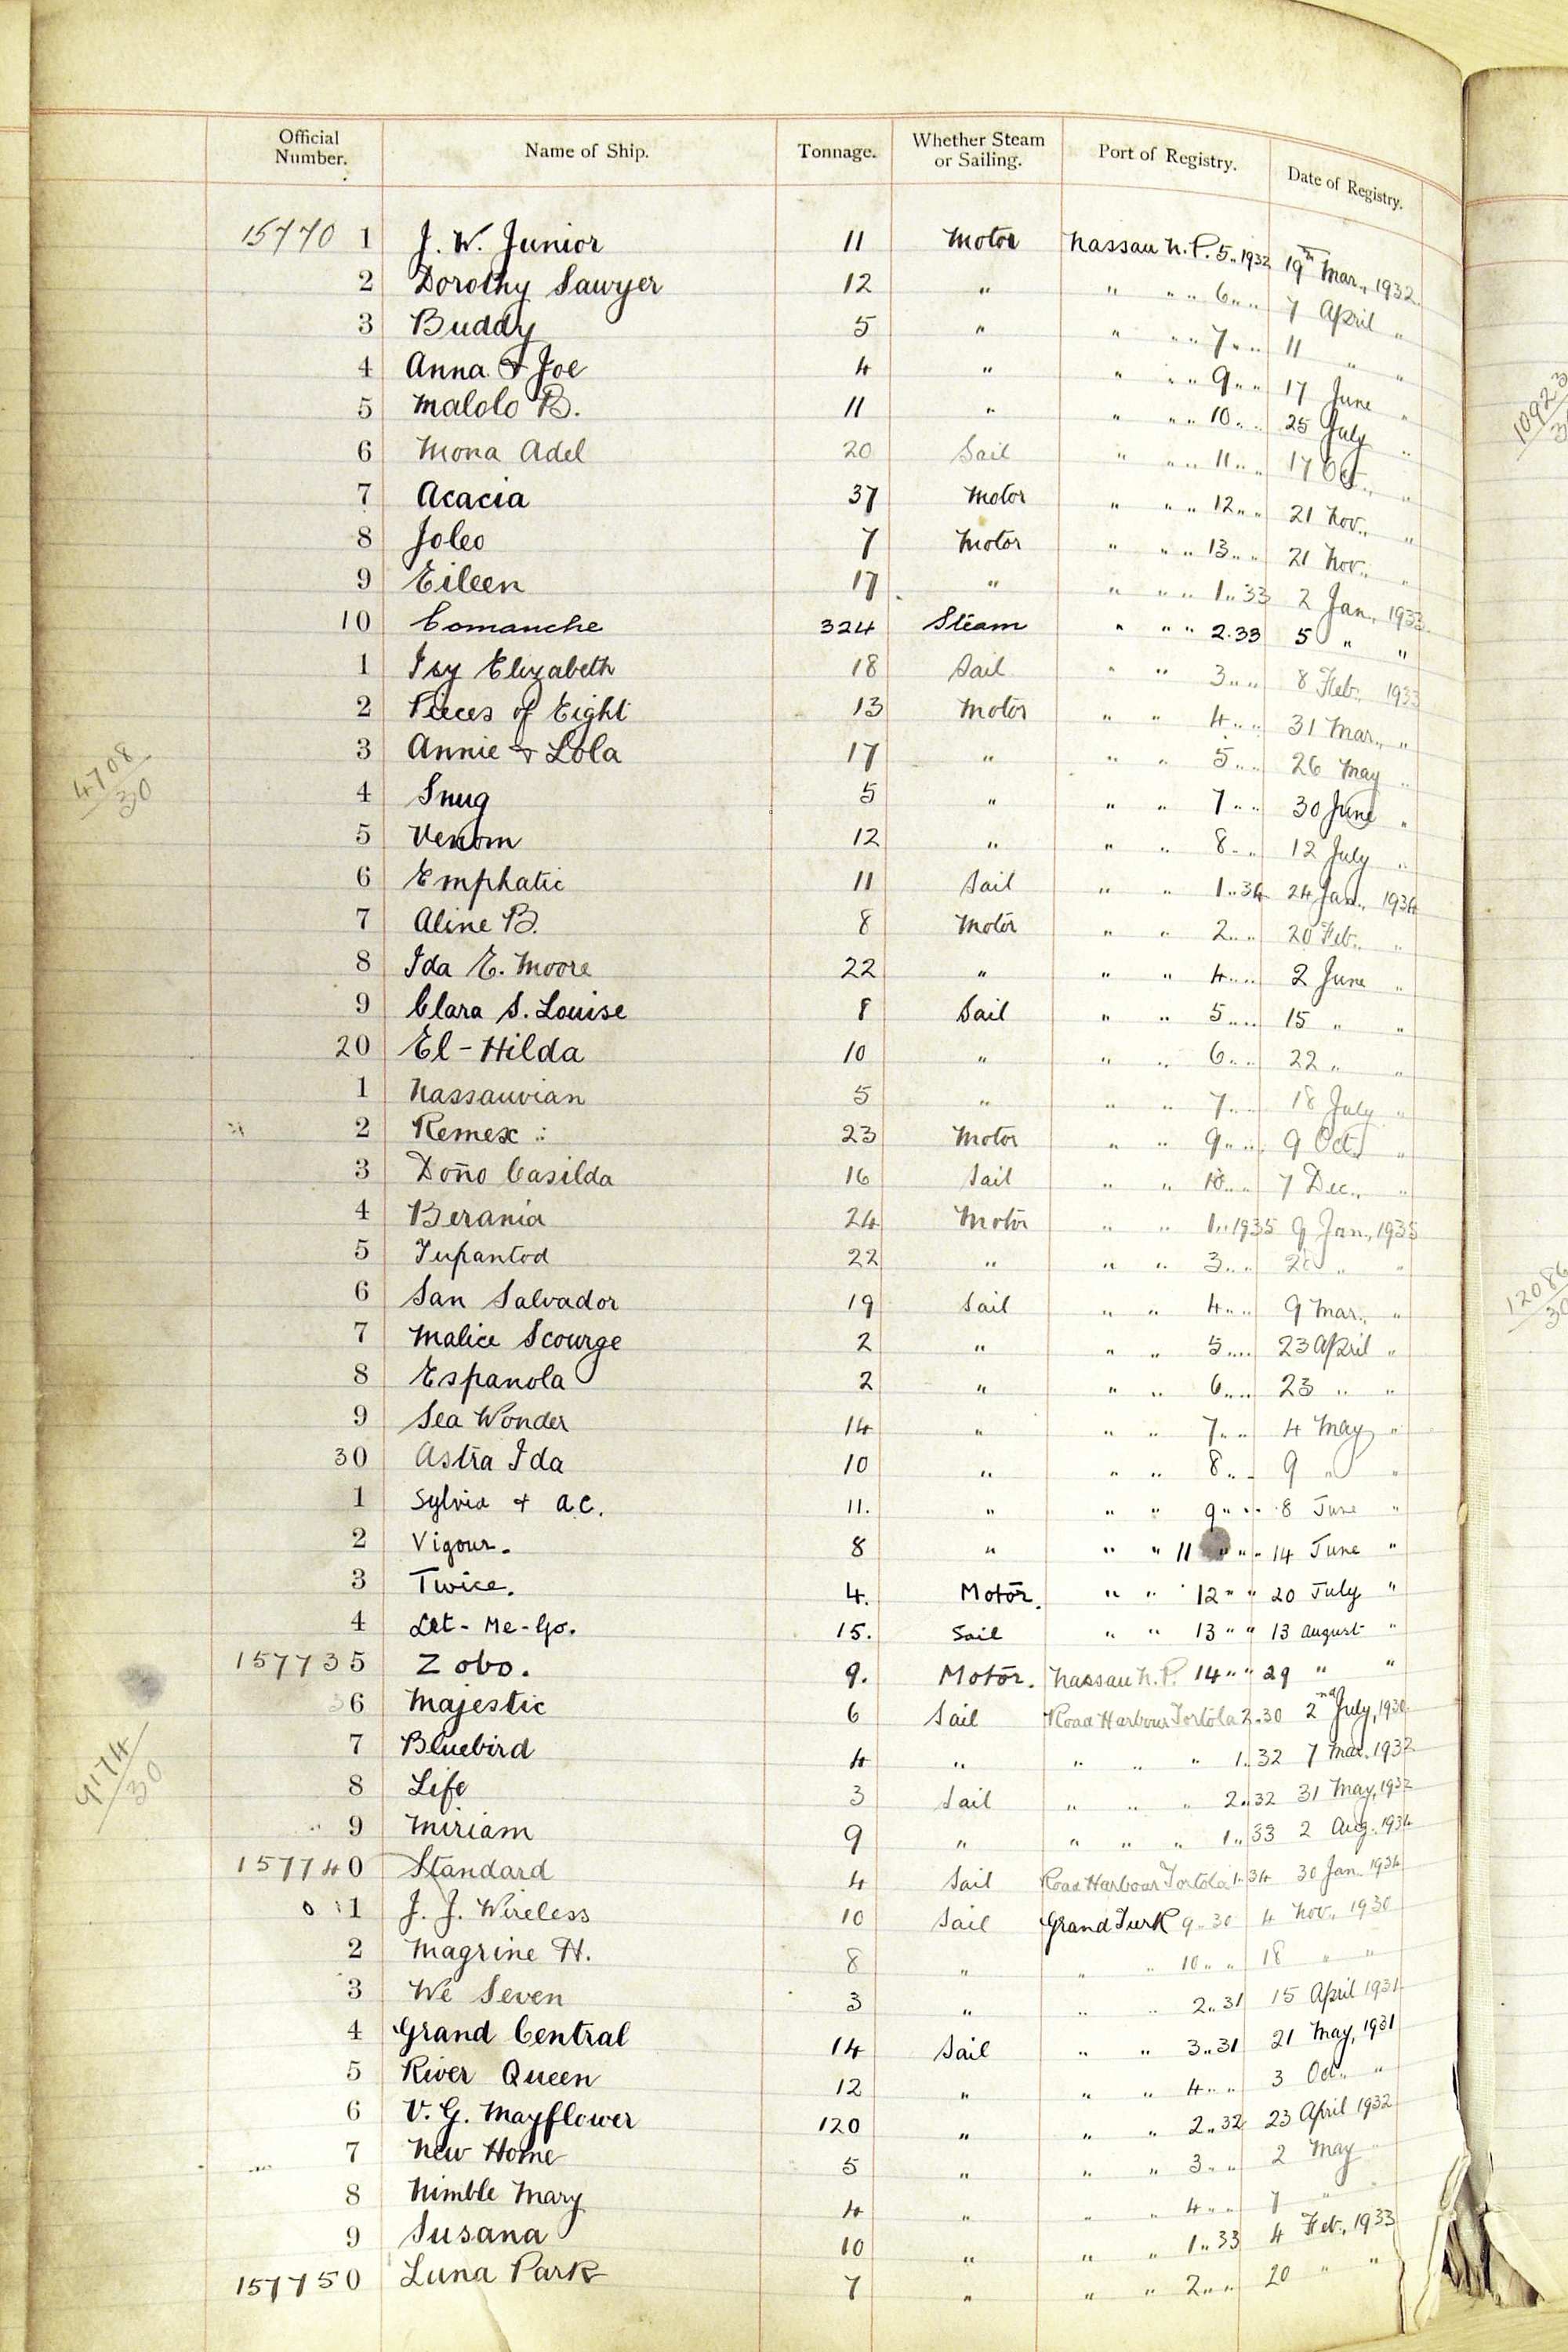 Official Number. Name of Ship. Tonnage. Whether Steam or Sailing. Port of Registry. Date of Registry.
15770 1 J. W. Junior 11 Motor Nassau N.P. 5..1932 19th Mar., 1932
2 Dorothy Sawyer 12 " " " " 6 " " 7 April "
3 Buddy 5 " " " " 7 " " 11 " "
4 Anna & Joe 4 " " " " 9 " " 17 June "
5 Malolo B. 11 " " " " 10 " " 25 July "
6 Mona Adel 20 Sail " " " 11 " " 17 Oct., "
7 Acacia 37 Motor " " " 12 " " 21 Nov., "
8 Joleo 7 Motor " " " 13 " " 21 Nov., "
9 Eileen 17 " " " " 1..33 2 Jan., 1933
10 Comanche 324 Steam " " " 2.33 5 " "
1 Isy Elizabeth 18 Sail " " 3 " " 8 Feb., 1933
2 Pieces of Eight 13 Motor " " 4 " " 31 Mar., "
3 Annie & Lola 17 " " " 5 " " 26 May "
4 Snug 5 " " " 7 " " 30 June "
5 Venom 12 " " " 8 " " 12 July "
6 Emphatic 11 Sail " " 1..34 24 Jan., 1934
7 Aline B. 8 Motor " " 2 " " 20 Feb., "
8 Ida E. Moore 22 " " " 4 " " 2 June "
9 Clara S. Louise 8 Sail " " 5 " " 15 " "
20 El-Hilda 10 " " " 6 " " 22 " "
1 Nassauvian 5 " " " 7 " " 18 July "
2 Remex 23 Motor " " 9 " " 9 Oct. "
3 Doño Casilda 16 Sail " " 10 " " 7 Dec., "
4 Berania 24 Motor " " 1..1935 9 Jan., 1935
5 Tupantod 22 " " " 3 " " " "
6 San Salvador 19 Sail " " 4 " " 9 Mar., "
7 Malice Scourge 2 " " " 5 " " 23 April "
8 Espanola 2 " " " 6 " " 23 " "
9 Sea Wonder 14 " " " 7 " " 4 May "
30 Astra Ida 10 " " " 8 " " 9 " "
1 Sylvia & A.C. 11. " " " 9 " " 8 June "
2 Vigour. 8 " " " 11 " " 14 June "
3 Twice. 4. Motor. " " 12 " " 20 July "
4 Let-Me-Go. 15. Sail " " 13 " " 13 August "
157735 Zobo. 9. Motor. Nassau N.P. 14 " " 29 " "
36 Majestic 6 Sail Road Harbour Tortola 2.30 2nd July, 1930
7 Bluebird 4 " " " " 1..32 7 Mar. 1932
8 Life 3 Sail " " " 2..32 31 May, 1932
9 Miriam 9 " " " " 1..33 2 Aug. 1934
157740 Standard 4 Sail Road Harbour Tortola 1..34 30 Jan. 1934
1 J. J. Wireless 10 Sail Grand Turk 9..30 4 Nov., 1930
2 Magrine H. 8 " " " 10 " " 18 " "
3 We Seven 3 " " " 2..31 15 April 1931
4 Grand Central 14 Sail " " 3..31 21 May, 1931
5 River Queen 12 " " " 4 " " 3 Oct., "
6 V. G. Mayflower 120 " " " 2..32 23 April 1932
7 New Home 5 " " " 3 " " 2 May "
8 Nimble Mary 4 " " " 4 " " 7 " "
9 Susana 10 " " " 1..33 4 Feb., 1933
157750 Luna Park 7 " " " 2 " " 20 " "
4708/30
9174/30